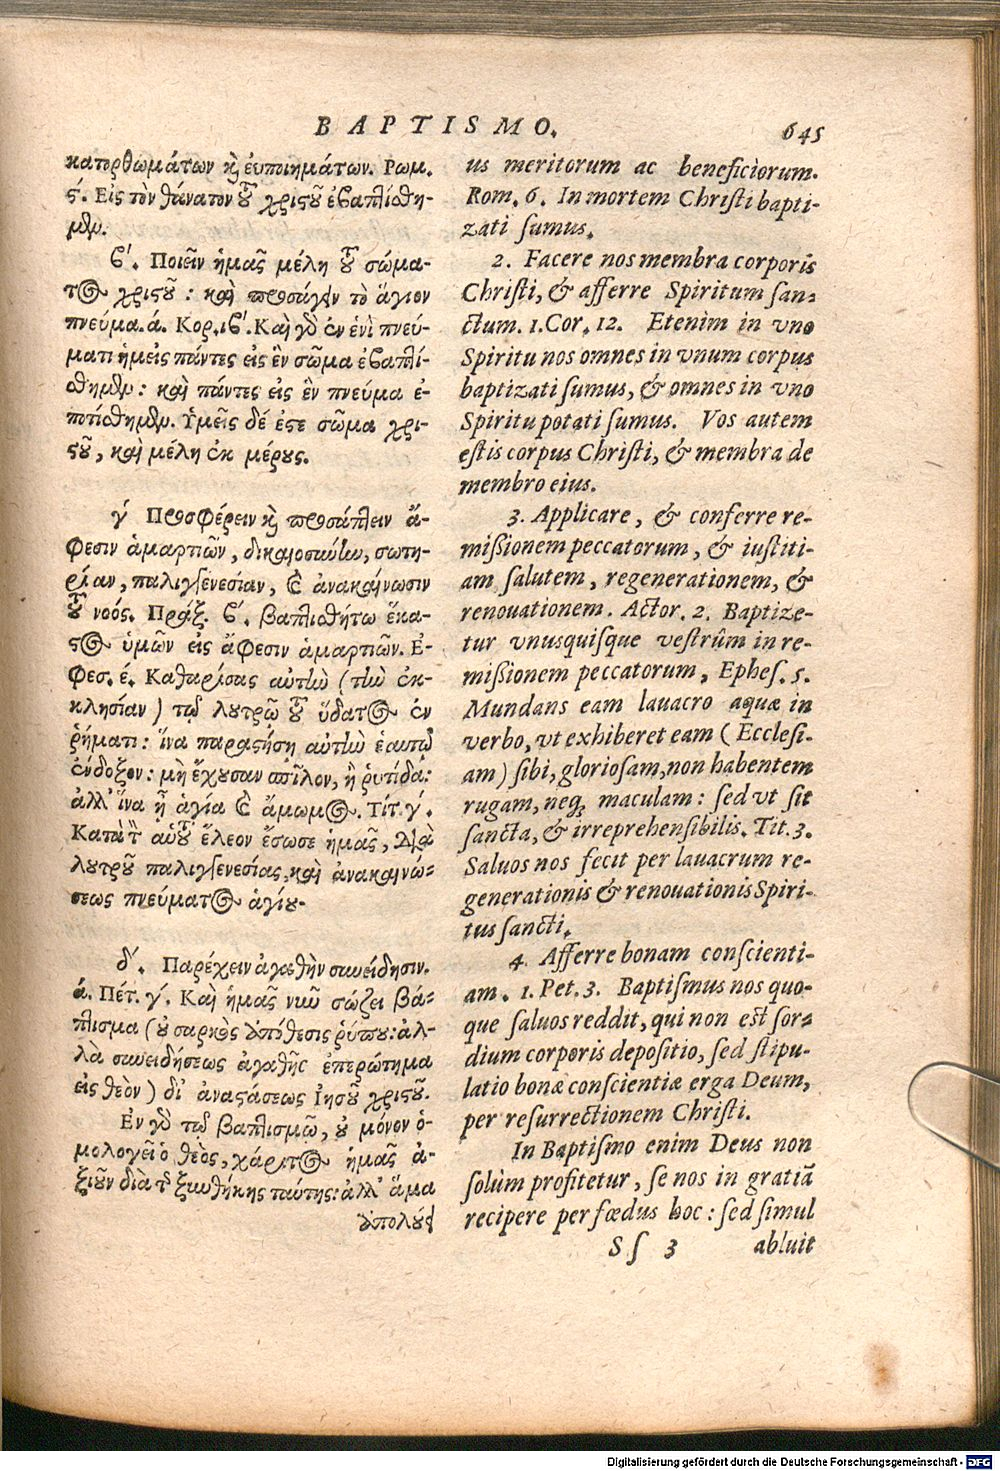 BAPTISMO. 645
κατορθωμάτων κ̀ ἐυποιημάτων. Ρωμ.
ϛ΄. Εἰς τὸν θάνατον τοῦ χριστοῦ ἐβαπτίσθη-
μεν.
β΄. Ποιεῖν ἡμᾶς μέλη τοῦ σώμα-
τος χριστοῦ : καὶ προσάγειν τὸ ἅγιον
πνεῦμα. ά. Κορ. ιβ΄. Καὶ γὸ ἐν ἑνὶ πνεύ-
ματι ἡμεῖς πάντες εἰς ἓν σῶμα ἐβαπτί-
σθημεν : καὶ πάντες εἰς ἓν πνεῦμα ἐ-
ποτίσθημεν. Ὑμεῖς δέ ἐστε σῶμα χρι-
στοῦ, καὶ μέλη ἐκ μέρους.
γ΄ Προσφέρειν κ̀ προσάπτειν ἄ-
φεσιν ἁμαρτιῶν, δικαιοσύνην, σωτη-
ρίαν, παλιγγενεσίαν, καὶ ἀνακαίνωσιν
τοῦ νοός. Πράξ. β΄. βαπτισθήτω ἕκα-
στος ὑμῶν εἰς ἄφεσιν ἁμαρτιῶν. Ε-
φεσ. έ. Καθαρίσας αὐτὴν (τὴν ἐκ-
κλησίαν) τῷ λουτρῷ τοῦ ὕδατος ἐν
ῥήματι : ἵνα παραστήσῃ αὐτὴν ἑαυτῷ
ἔνδοξον : μὴ ἔχουσαν σπῖλον, ἢ ῥυτίδα:
ἀλλ' ἵνα ᾖ ἁγία καὶ ἄμωμος. Τίτ. γ΄.
Κατὰ τὸν αὐτοῦ ἔλεον ἔσωσε ἡμᾶς, διὰ
λουτροῦ παλιγγενεσίας, καὶ ἀνακαινώ-
σεως πνεύματος ἁγίου.
δ΄. Παρέχειν ἀγαθὴν συνείδησιν.
ά. Πέτ. γ΄. Καὶ ἡμᾶς νῦν σώζει βά-
πτισμα (οὐ σαρκὸς ἀπόθεσις ῥύπου: ἀλ-
λὰ συνειδήσεως ἀγαθῆς ἐπερώτημα
εἰς θεὸν) δι' ἀναστάσεως Ιησοῦ χριστοῦ.
Εν γὸ τῷ βαπτισμῷ, οὐ μόνον ὁ-
μολογεῖ ὁ θεὸς, χάριτος ἡμᾶς ἀ-
ξιοῦν διὰ τῆς ξυνθήκης ταύτης: ἀλλ' ἅμα
ἀπολούει
us meritorum ac beneficiorum.
Rom. 6. In mortem Christi bapti-
zati sumus.
2. Facere nos membra corporis
Christi, & afferre Spiritum san-
ctum. 1. Cor. 12. Etenim in vno
Spiritu nos omnes in vnum corpus
baptizati sumus, & omnes in vno
Spiritu potati sumus. Vos autem
estis corpus Christi, & membra de
membro eius.
3. Applicare, & conferre re-
missionem peccatorum, & iustiti-
am, salutem, regenerationem, &
renouationem. Actor. 2. Baptize-
tur vnusquisque vestrûm in re-
missionem peccatorum, Ephes. 5.
Mundans eam lauacro aquæ in
verbo, vt exhiberet eam (Ecclesi-
am) sibi, gloriosam, non habentem
rugam, neq; maculam : sed vt sit
sancta, & irreprehensibilis. Tit. 3.
Saluos nos fecit per lauacrum re-
generationis & renouationis Spiri-
tus sancti.
4. Afferre bonam conscienti-
am. 1. Pet. 3. Baptismus nos quo-
que saluos reddit, qui non est sor-
dium corporis depositio, sed stipu-
latio bonæ conscientiæ erga Deum,
per resurrectionem Christi.
In Baptismo enim Deus non
solùm profitetur, se nos in gratiã
recipere per fœdus hoc : sed simul
Ss 3 abluit
Digitalisierung gefördert durch die Deutsche Forschungsgemeinschaft - DFG